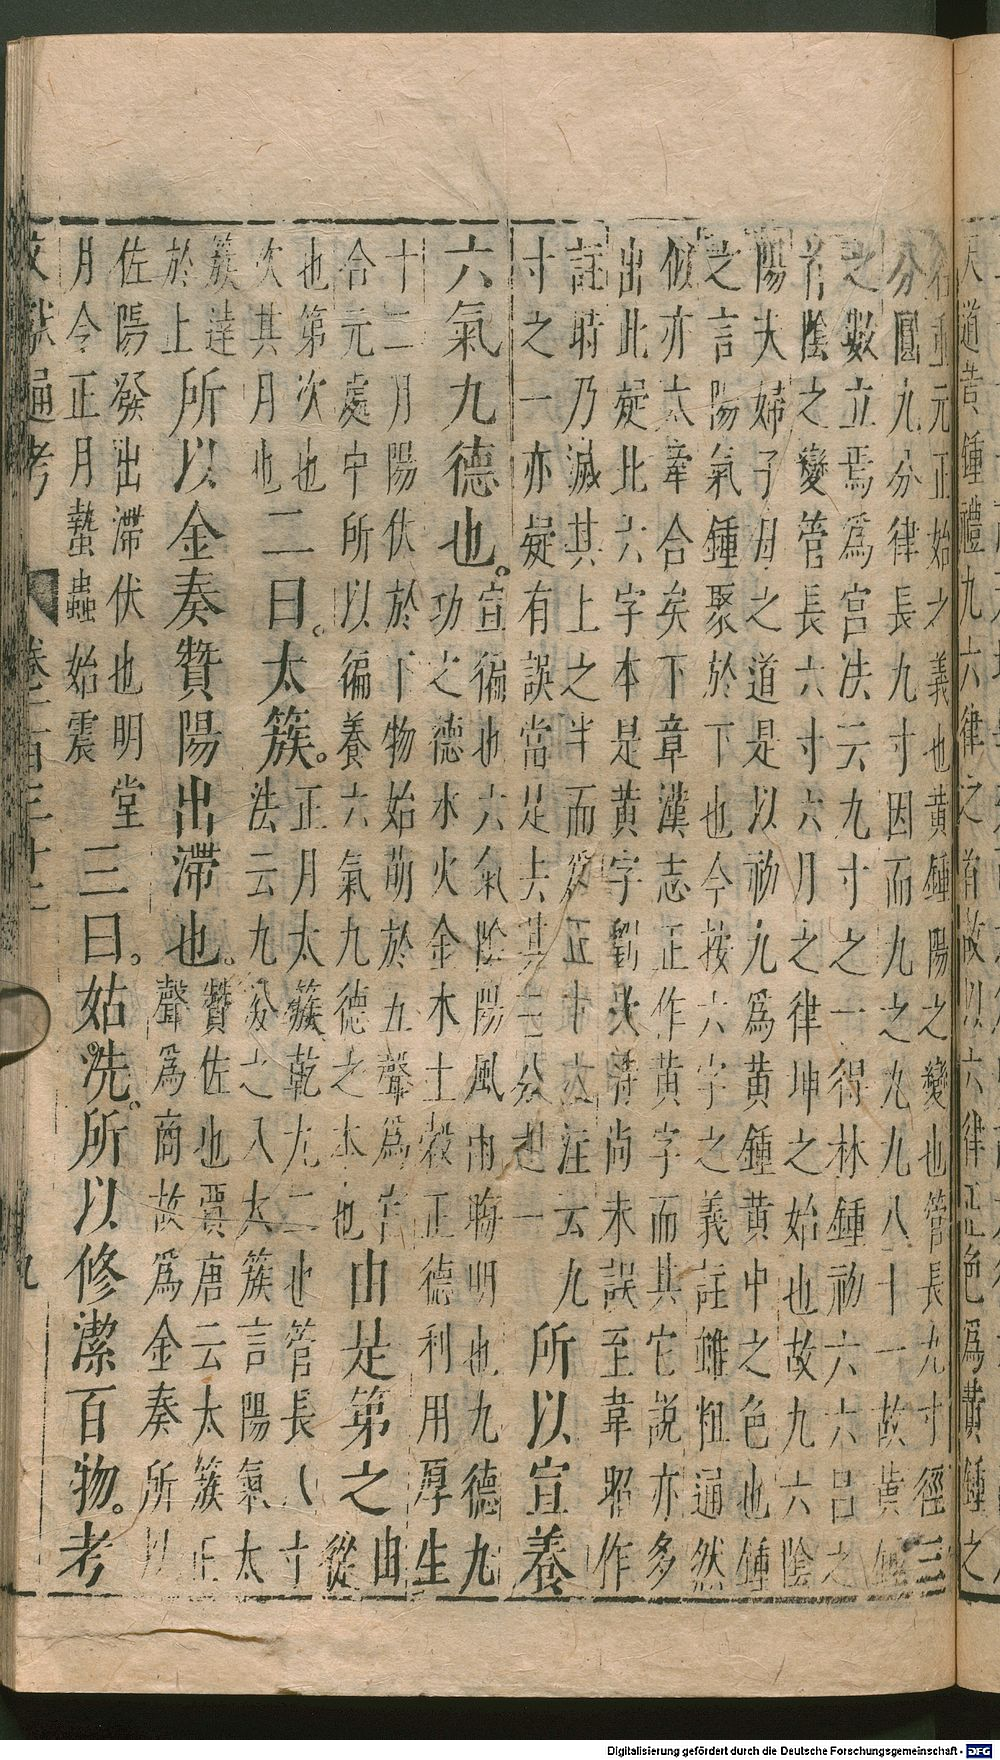 天道 鍾
名重元正始之義也黃鍾陽之變也管長九寸徑三
分圓九分律長九寸因而九之九九八十一故黃鍾
之數立焉爲宮法云九寸之一得林鍾初六六呂之
首陰之變管長六寸六月之律坤之始也故九六陰
陽夫婦子母之道是以初九爲黃鍾黃中之色也鍾
之言陽氣鍾聚於下也今按六字之義註雖粗通然
似亦太牽合矣下章漢志正作黃字而其它說亦多
出此疑此六字本是黃字劉歆時尚未誤至韋昭作
註時乃滅其上之半而爲五 注云九
寸之一亦疑有誤當是去其三分 一
所以宣養
六氣九德也。
宣徧也六氣陰陽風雨晦明也九德九
功之德水火金木土穀正德利用厚生
十二月陽伏於下物始萌於五聲爲宮
合元處中所以徧養六氣九德之本也
由是第之
由
從
也第次也
次其月也
二曰。太簇。
正月太簇乾九二也管長八寸
法云九分之八太簇言陽氣太
簇達
於上
所以金奏贊陽出滯也。
贊佐也賈唐云太簇正
聲爲商故爲金奏所以
佐陽發出滯伏也明堂
月令正月蟄蟲始震
三曰。姑洗。所以修潔百物。考
文獻通考 卷一百三十 九
Digitalisierung gefördert durch die Deutsche Forschungsgemeinschaft - DFG